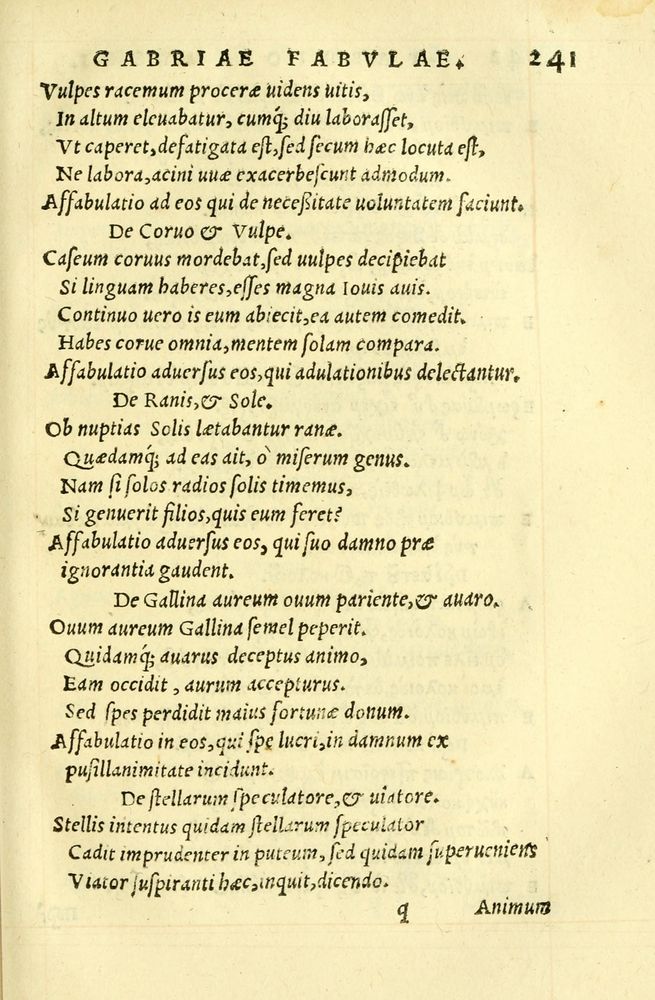 GABRIAE FABVLAE. 241
Vulpes racemum proceræ uidens uitis,
In altum eleuabatur, cumq́; diu laboraſſet,
Vt caperet, defatigata eſt, ſed ſecum hæc locuta eſt,
Ne labora, acini uuæ exacerbeſcunt admodum.
Affabulatio ad eos qui de neceßitate uoluntatem faciunt.
De Coruo & Vulpe.
Caſeum coruus mordebat, ſed uulpes decipiebat
Si linguam haberes, eſſes magna Iouis auis.
Continuo uero is eum abiecit, ea autem comedit.
Habes corue omnia, mentem ſolam compara.
Affabulatio aduerſus eos, qui adulationibus delectantur.
De Ranis, & Sole.
Ob nuptias Solis lætabantur ranæ.
Quædamq́; ad eas ait, ò miſerum genus.
Nam ſi ſolos radios ſolis timemus,
Si genuerit filios, quis eum feret?
Affabulatio aduerſus eos, qui ſuo damno præ
ignorantia gaudent.
De Gallina aureum ouum pariente, & auaro.
Ouum aureum Gallina ſemel peperit.
Quidamq́; auarus deceptus animo,
Eam occidit, aurum accepturus.
Sed ſpes perdidit maius fortunæ donum.
Affabulatio in eos, qui ſpe lucri, in damnum ex
puſillanimitate incidunt.
De ſtellarum ſpeculatore, & uiatore.
Stellis intentus quidam ſtellarum ſpeculator
Cadit imprudenter in puteum, ſed quidam ſuperueniens
Viator ſuſpiranti hæc, inquit, dicendo.
q Animum